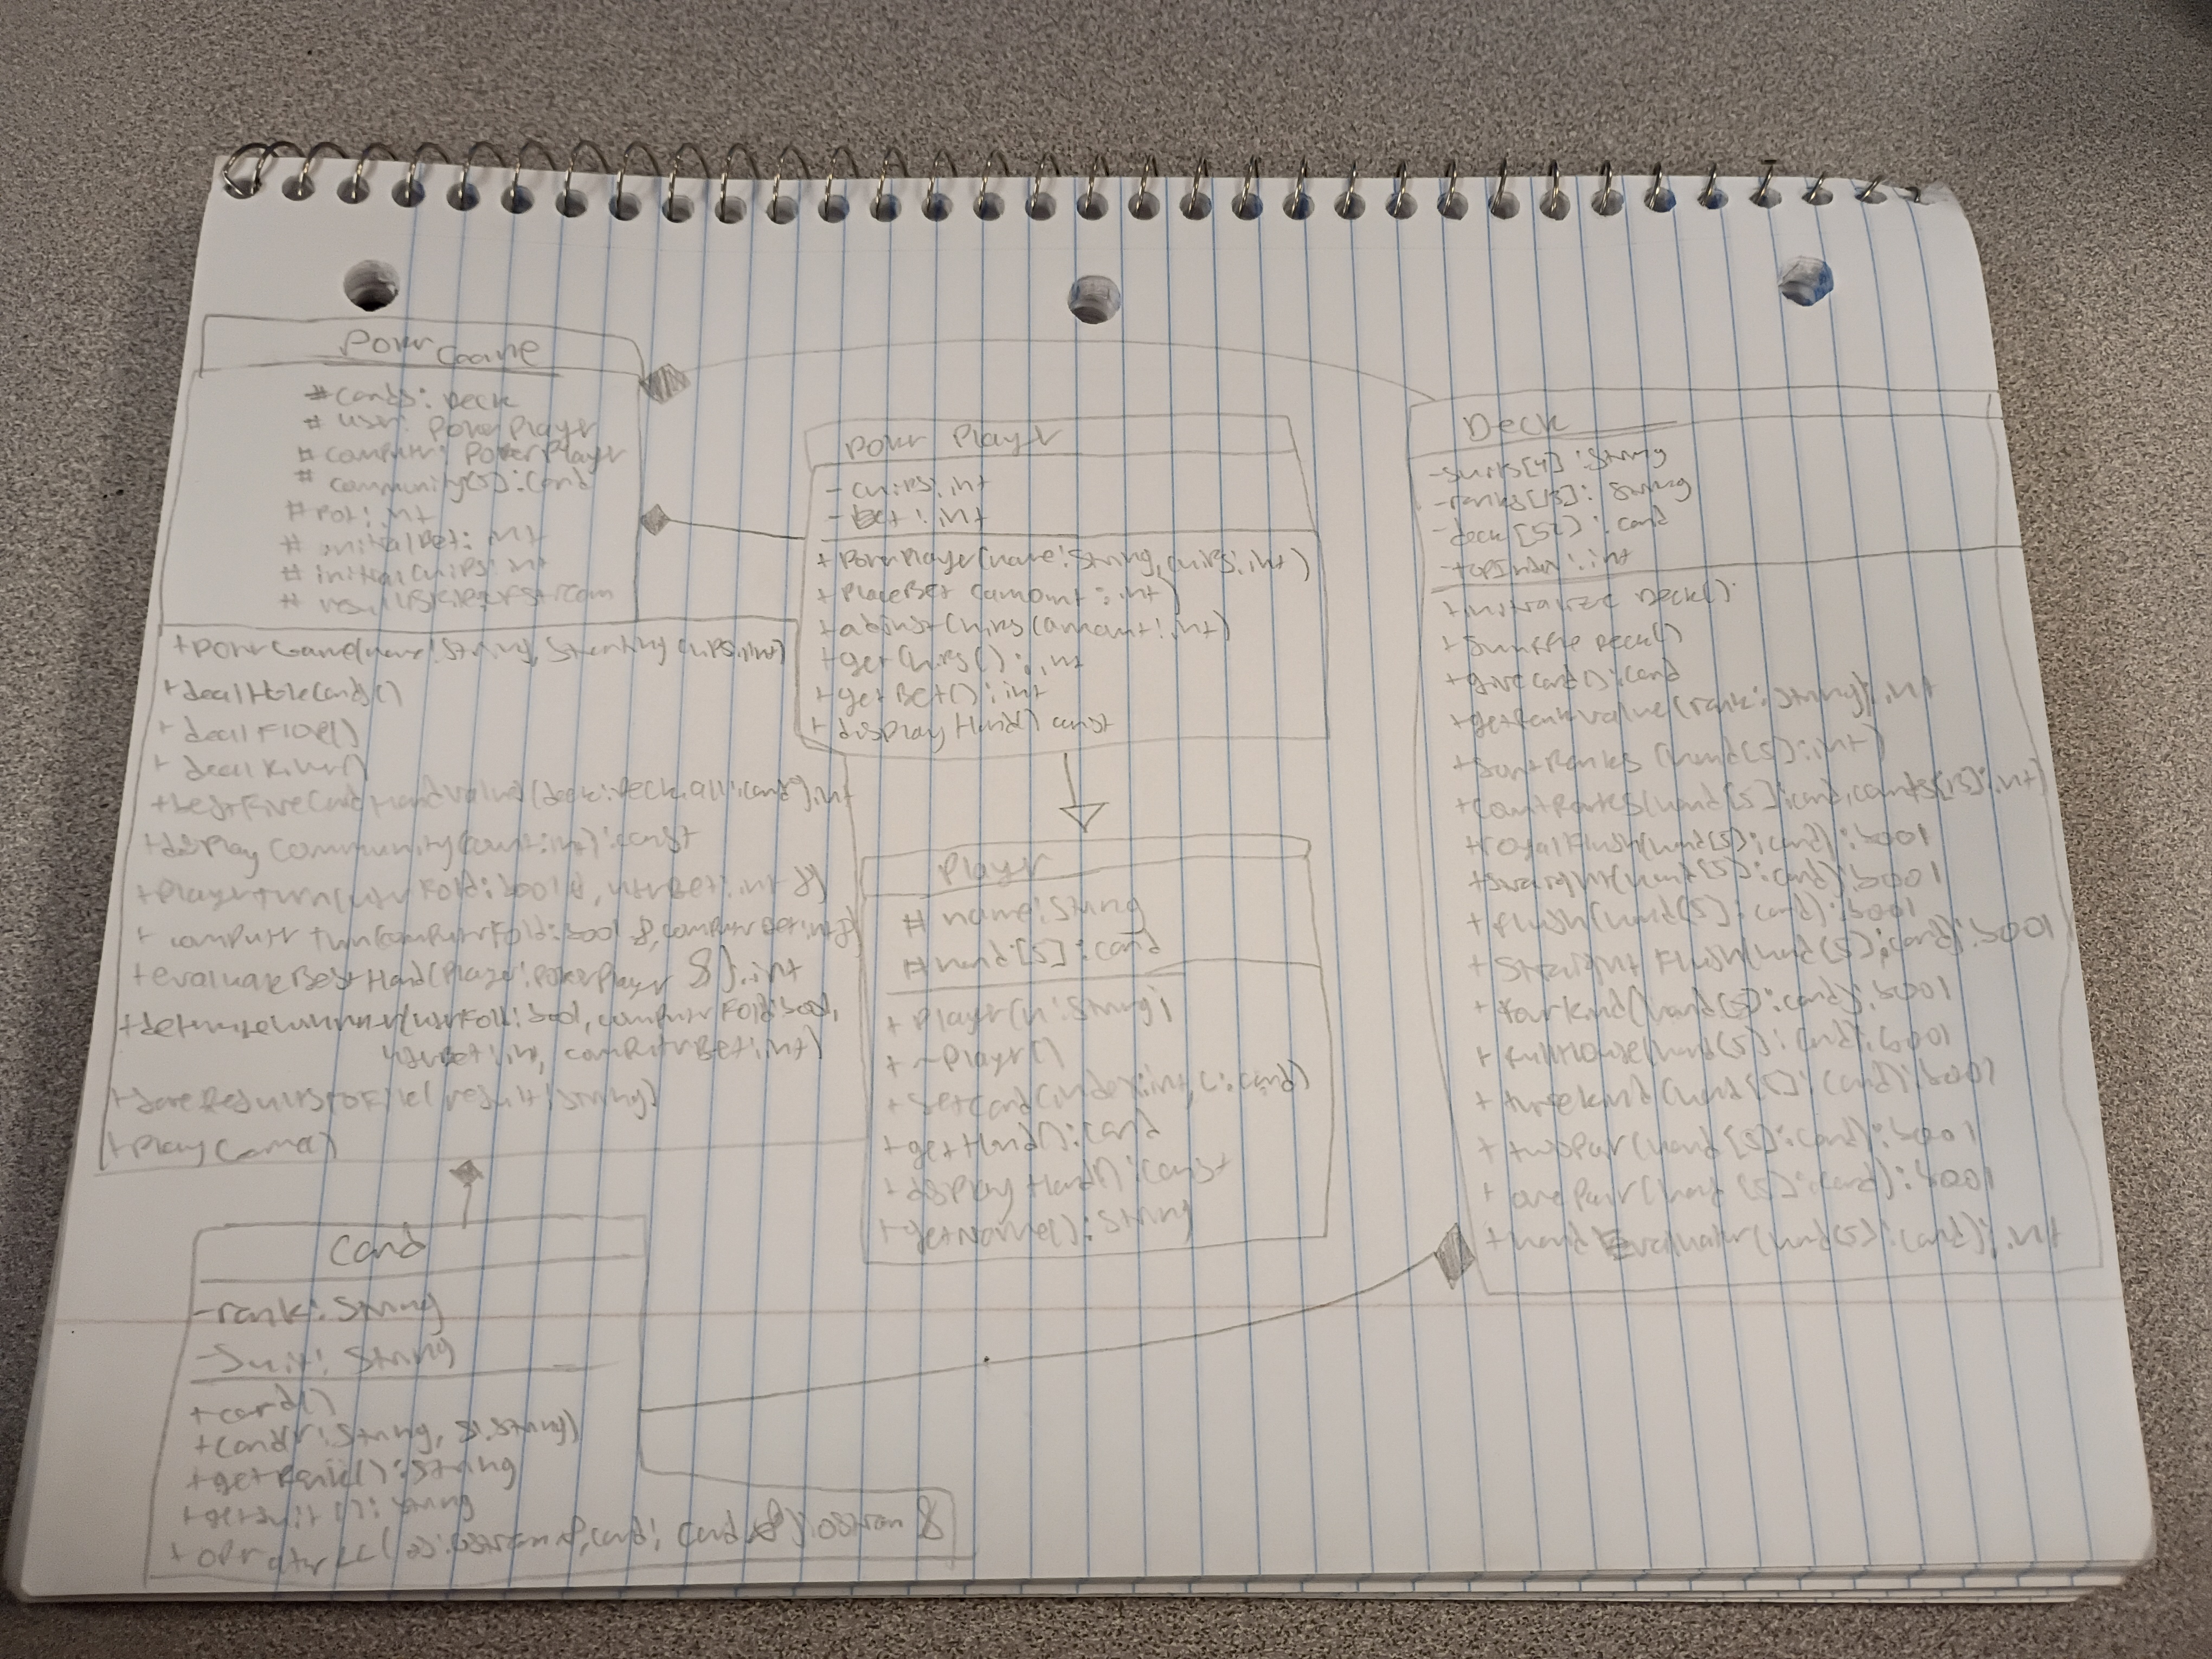 Pokr Game
# cards: Deck
# user: PokerPlayer
# computr: PokerPlayer
# community[5]: Card
# pot: int
# initialBet: int
# initialChips: int
+ PokrGame(name: String, Starting chips: int)
+ dealHoleCards()
+ dealFlop()
+ dealRiver()
+ bestFiveCardHandValue(deck: Deck, all: Card): int
+ display Community(count: int): const
+ Playerturn(usrFold: bool &, usrBet: int &)
+ computr turn(computrFold: bool &, computrBet: int &)
+ evaluateBestHand(Player: PokerPlayer &): int
+ determineWinner(usrFold: bool, computrFold: bool,
usrBet: int, computrBet: int)
+ saveResultstoFile(result: String)
+ PlayGame()
Pokr Playr
- chips: int
- bet: int
+ PokrPlayer(name: String, chips: int)
+ PlaceBet (amount: int)
+ adjustChips (amount: int)
+ getChips(): int
+ getBet(): int
+ display Hand() const
Playr
# name: String
# hand[5]: Card
+ Player(n: String)
+ ~Player()
+ setCard(index: int, c: card)
+ getHand(): Card
+ display Hand(): Const
+ getName(): String
Deck
- suits[4]: String
- ranks[13]: String
- deck[52]: card
- topIndex: int
+ initialize Deck()
+ shuffle Deck()
+ giveCard(): Card
+ getRankValue(rank: String): int
+ sortRanks (hand[5]: int)
+ countRanks(hand[5]: card, counts[13]: int)
+ royalFlush(hand[5]: card): bool
+ straight(hand[5]: card): bool
+ flush(hand[5]: card): bool
+ Straight Flush(hand[5]: card): bool
+ fourkind(hand[5]: card): bool
+ fullHouse(hand[5]: card): bool
+ threekind(hand[5]: card): bool
+ twoPair(hand[5]: card): bool
+ onePair(hand[5]: card): bool
+ hand Evaluatr(hand[5]: card): int
Card
- rank: String
- Suit: String
+ card()
+ Card(r: String, s: String)
+ getRank(): String
+ getSuit(): String
+ opratur <<(os: ostream &, card: Card &): ostream &